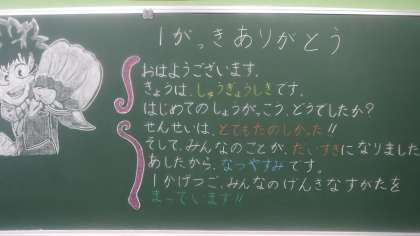 1がっきありがとう
おはようございます。
きょうは、しゅうぎょうしきです。
はじめてのしょうがっこう、どうでしたか？
せんせいは、とてもたのしかった!!
そして、みんなのことが、だいすきになりました
あしたから、なつやすみです。
1かげつご、みんなのげんきなすがたを
まっています!!